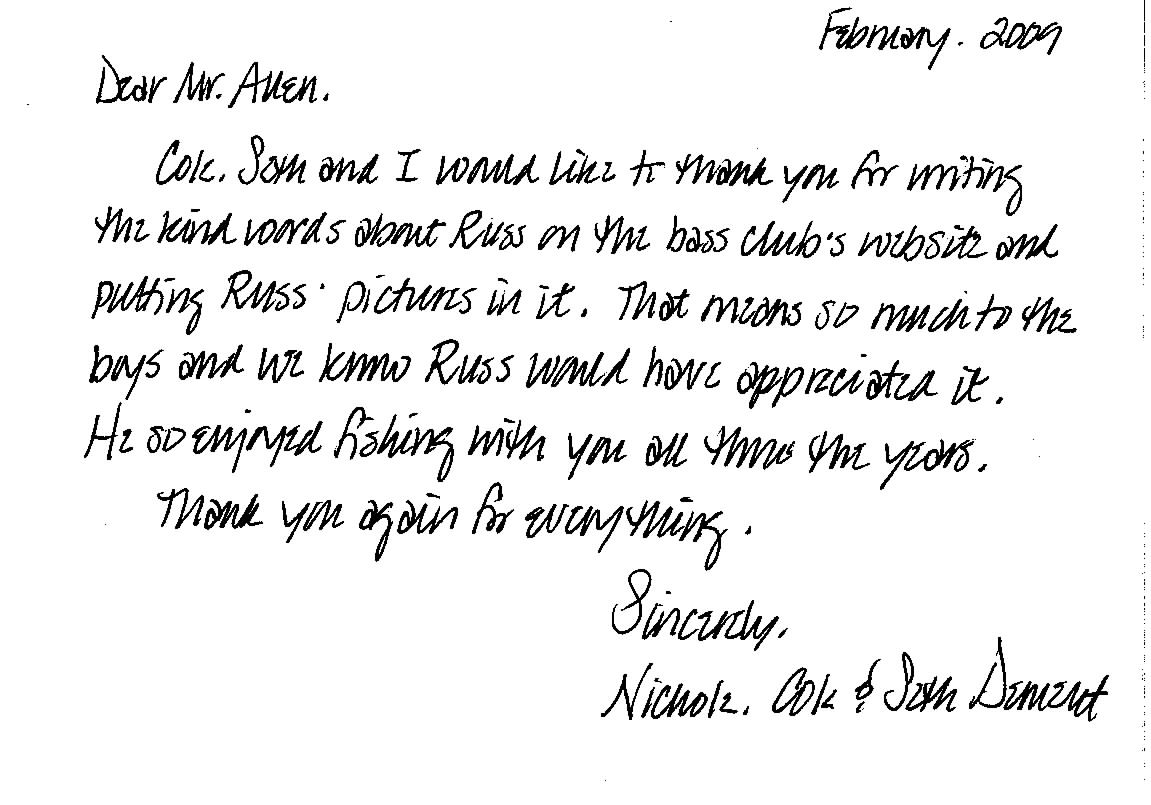 February, 2009
Dear Mr. Allen,
Cole, Sam and I would like to thank you for writing
the kind words about Russ on the bass club's website and
putting Russ' pictures in it. That means so much to the
boys and we know Russ would have appreciated it.
He so enjoyed fishing with you all thru the years.
Thank you again for everything.
Sincerely,
Nichole, Cole & Sam